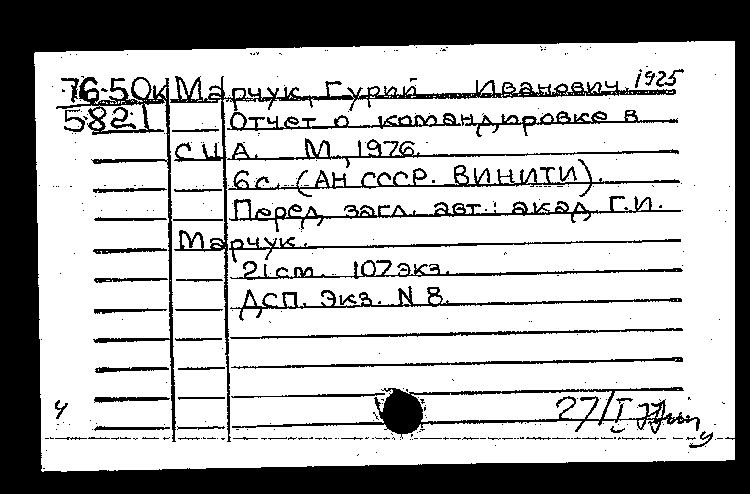 76-50к Марчук, Гурий Иванович 1925
5821 Отчет о командировке в
США. М, 1976.
6 с. (АН СССР. ВИНИТИ).
Перед загл. авт.: акад. Г.И.
Марчук.
21 см. 107 экз.
ДСП. Экз. N 8.
ч 27/I